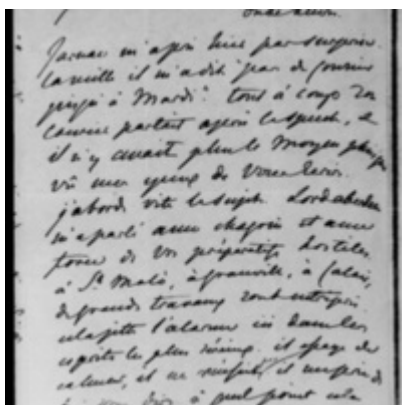 Jarnac m'a pris hier par surprise.
la veille il m'a dit pas de courrier
jusqu'à Mardi. tout à coup son
courrier partait après le speech, &
il n'y avait plus le moyen physique
vû mes yeux de vous écrire.
j'aborde vite le sujet. Lord Aberdeen
m'a parlé avec chagrin et avec
force de vos préparatifs hostiles
à St Malo, à Granville, à Calais,
de grands travaux sont entrepris
cela jette l'alarme ici dans les
esprits les plus sérieux. il essaye de
calmer, il ne réussit, il me prie de
dire à quel point cela